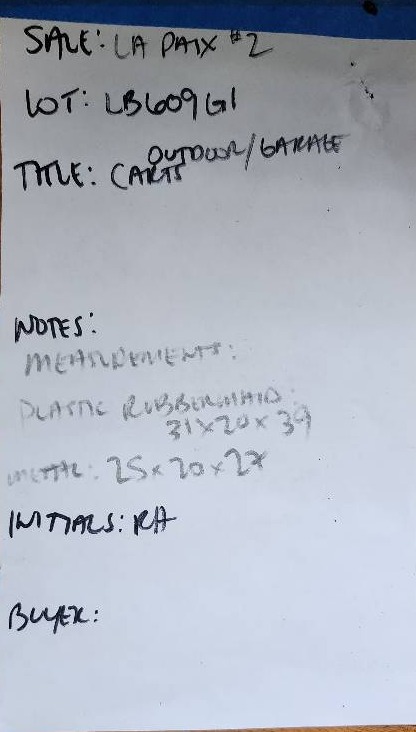 SALE: LA PAIX #2
LOT: LB609G1
OUTDOOR/GARAGE
TITLE: CARTS
NOTES:
MEASUREMENTS:
PLASTIC RUBBERMAID:
31x20x39
METAL: 25x20x27
INITIALS: RH
BUYER: